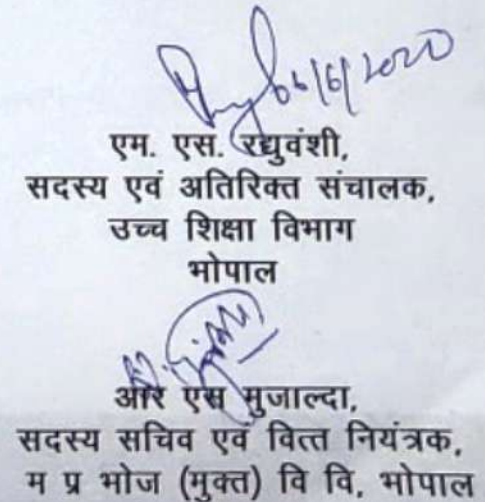 06/6/2020
एम. एस. रघुवंशी,
सदस्य एवं अतिरिक्त संचालक,
उच्च शिक्षा विभाग
भोपाल
आर एस मुजाल्दा,
सदस्य सचिव एवं वित्त नियंत्रक,
म प्र भोज (मुक्त) वि वि, भोपाल